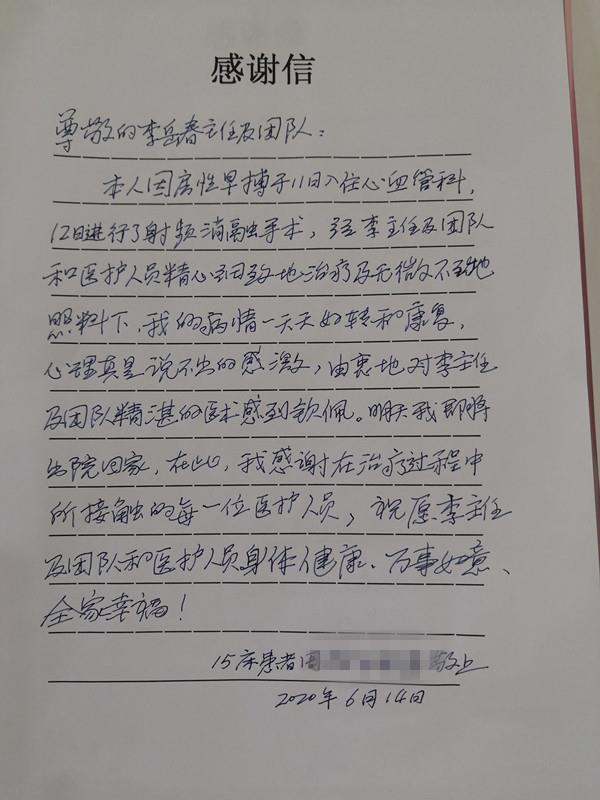 感谢信
尊敬的李岳春主任及团队：
本人因房性早搏于11日入住心血管科，
12日进行了射频消融手术，经李主任及团队
和医护人员精心细致地治疗及无微不至地
照料下，我的病情一天天好转和康复，
心理真是说不出的感激，由衷地对李主任
及团队精湛的医术感到钦佩。明天我即将
出院回家，在此，我感谢在治疗过程中
所接触的每一位医护人员，祝愿李主任
及团队和医护人员身体健康、万事如意、
全家幸福！
15床患者 敬上
2020年6月14日